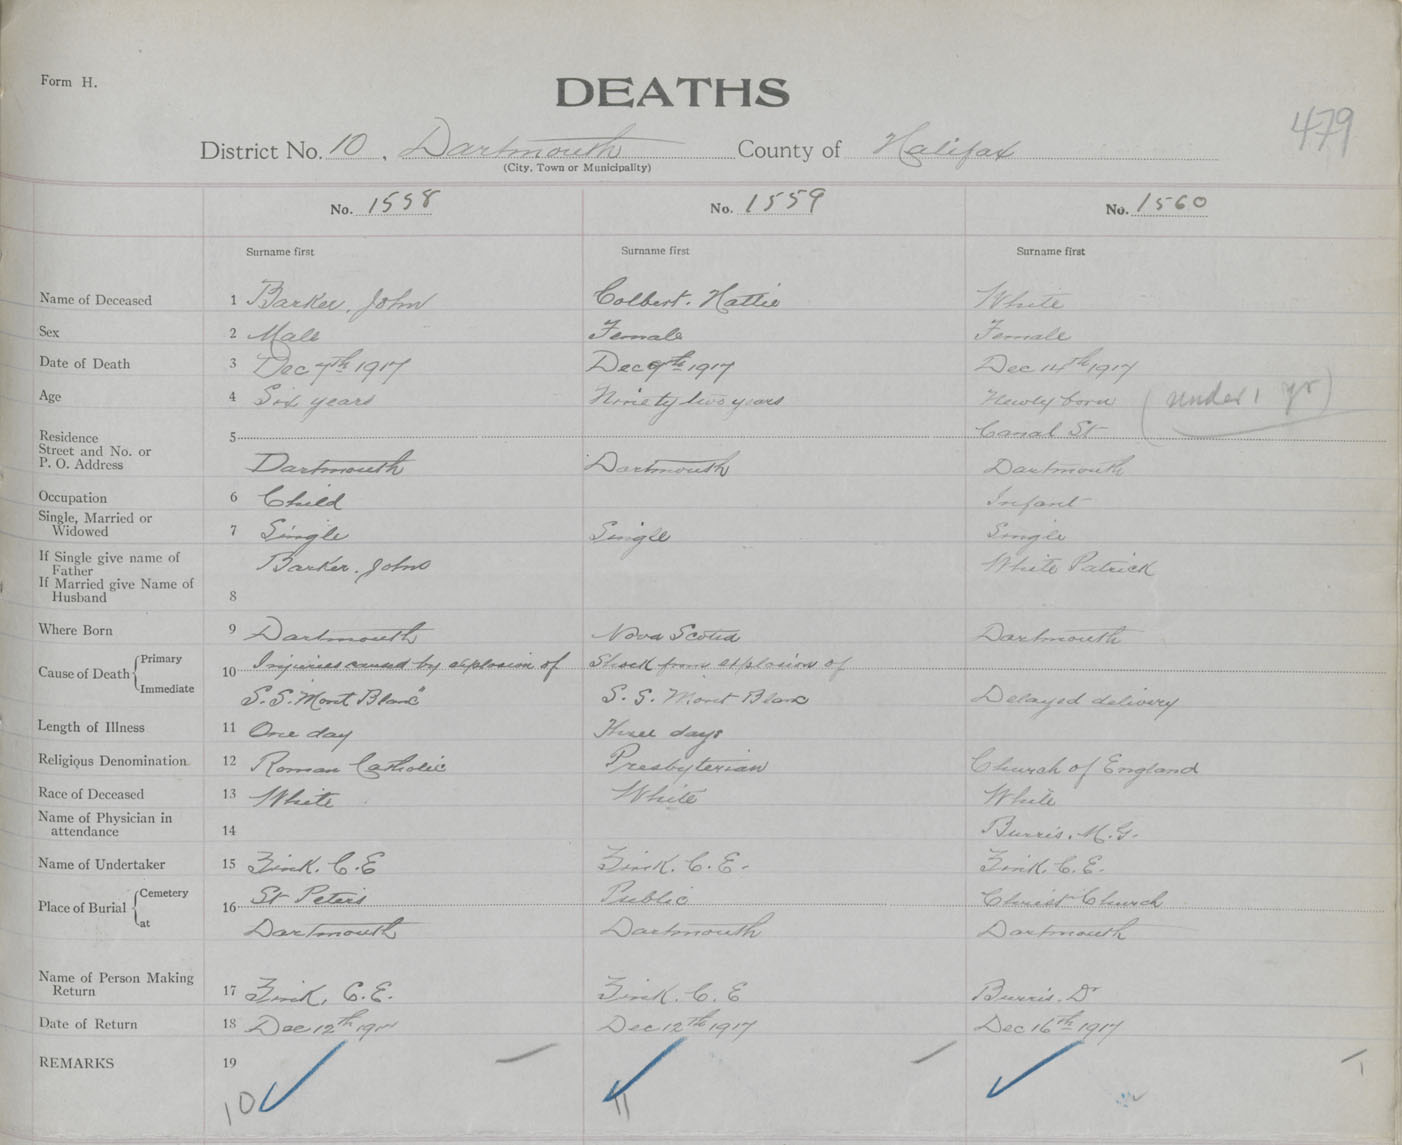 Form H.
DEATHS
479
District No. 10, Dartmouth County of Halifax
(City, Town or Municipality)
No. 1558 No. 1559 No. 1560
Surname first Surname first Surname first
Name of Deceased 1 Barker, John Colbert. Hattie White
Sex 2 Male Female Female
Date of Death 3 Dec 7th 1917 Dec 9th 1917 Dec 14th 1917
Age 4 Six years Ninety two years Newly born (under 1 yr)
Residence
Street and No. or
P. O. Address
5 Canal St
Dartmouth Dartmouth Dartmouth
Occupation 6 Child Infant
Single, Married or
Widowed
7 Single Single Single
If Single give name of
Father
Barker. John White Patrick
If Married give Name of
Husband
8
Where Born 9 Dartmouth Nova Scotia Dartmouth
Cause of Death { Primary
Immediate
10 Injuries caused by explosion of Shock from explosion of
S.S. "Mont Blanc" S. S. Mont Blanc Delayed delivery
Length of Illness 11 One day Three days
Religious Denomination 12 Roman Catholic Presbyterian Church of England
Race of Deceased 13 White White White
Name of Physician in
attendance
14 Burris, M. G.
Name of Undertaker 15 Zink. C. E Zink. C. E. Zink. C. E.
Place of Burial { Cemetery
at
16 St Peters Public Christ Church
Dartmouth Dartmouth Dartmouth
Name of Person Making
Return
17 Zink, C. E. Zink. C. E Burris. Dr
Date of Return 18 Dec 12th 1917 Dec 12th 1917 Dec 16th 1917
REMARKS 19
10 11